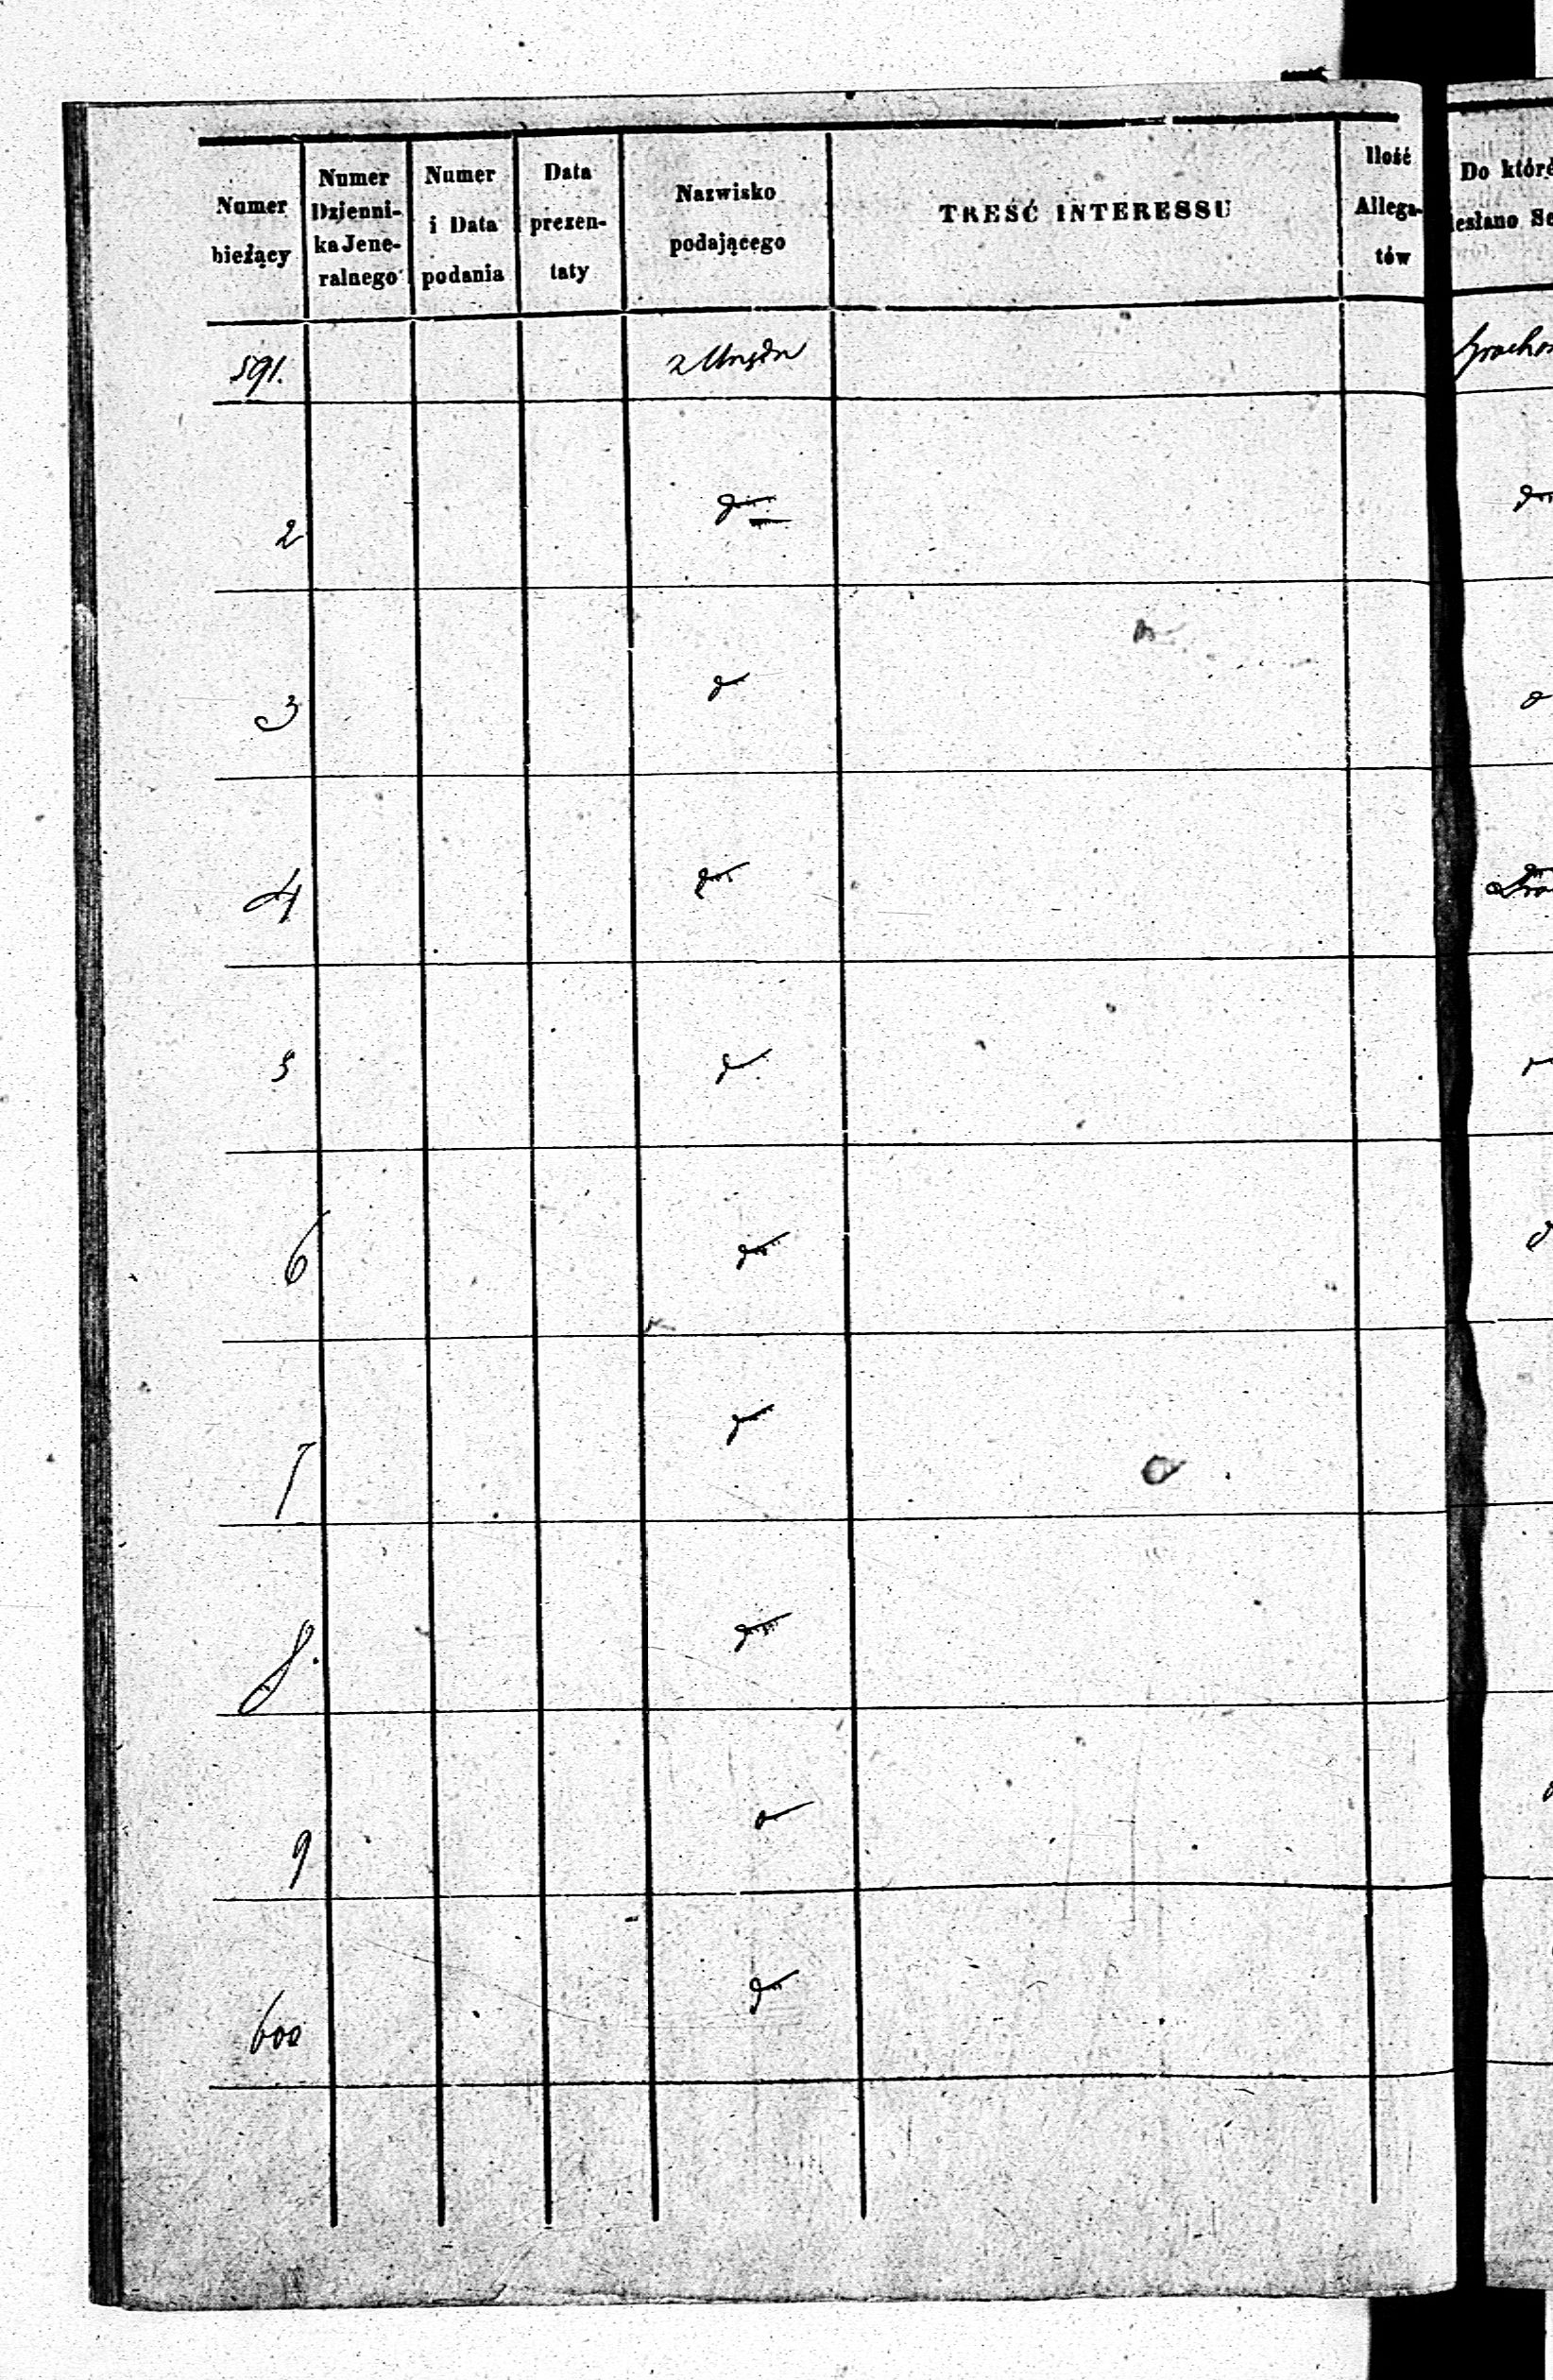 Numer bieżący
Numer Dzienni-ka Jene-ralnego
Numer i Data podania
Data prezen-taty
Nazwisko podającego
TREŚĆ INTERESSU
Ilość Allega-tów
Do któré
esłano Se
591. z Urzędu
2 d
3 d
4 d
5 d
6 d
7 d
8. d
9 d
600 d